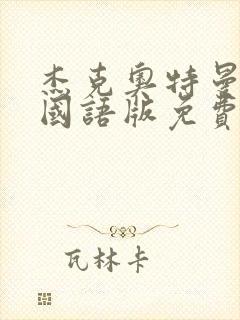 杰克奧特曼
國語版免費
瓦林卡